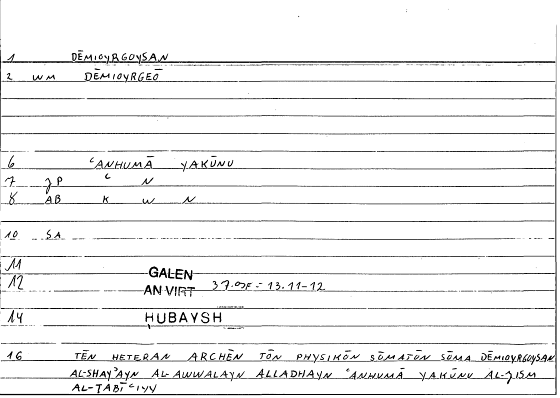 1 DĒMIOYRGOYSAN
2 WM DĒMIOYRGEŌ
6 ʿANHUMĀ YAKŪNU
7 JP ʿ N
8 AB K W N
10 SA
11
12 GALEN AN VIRT 37.07F = 13.11-12
14 HUBAYSH
16 TĒN HETERAN ARCHĒN TŌN PHYSIKŌN SŌMATŌN SŌMA DĒMIOYRGOYSAN
AL-SHAYʾAYN AL-AWWALAYN ALLADHAYN ʿANHUMĀ YAKŪNU AL-JISM
AL-ṬABĪʿIYY